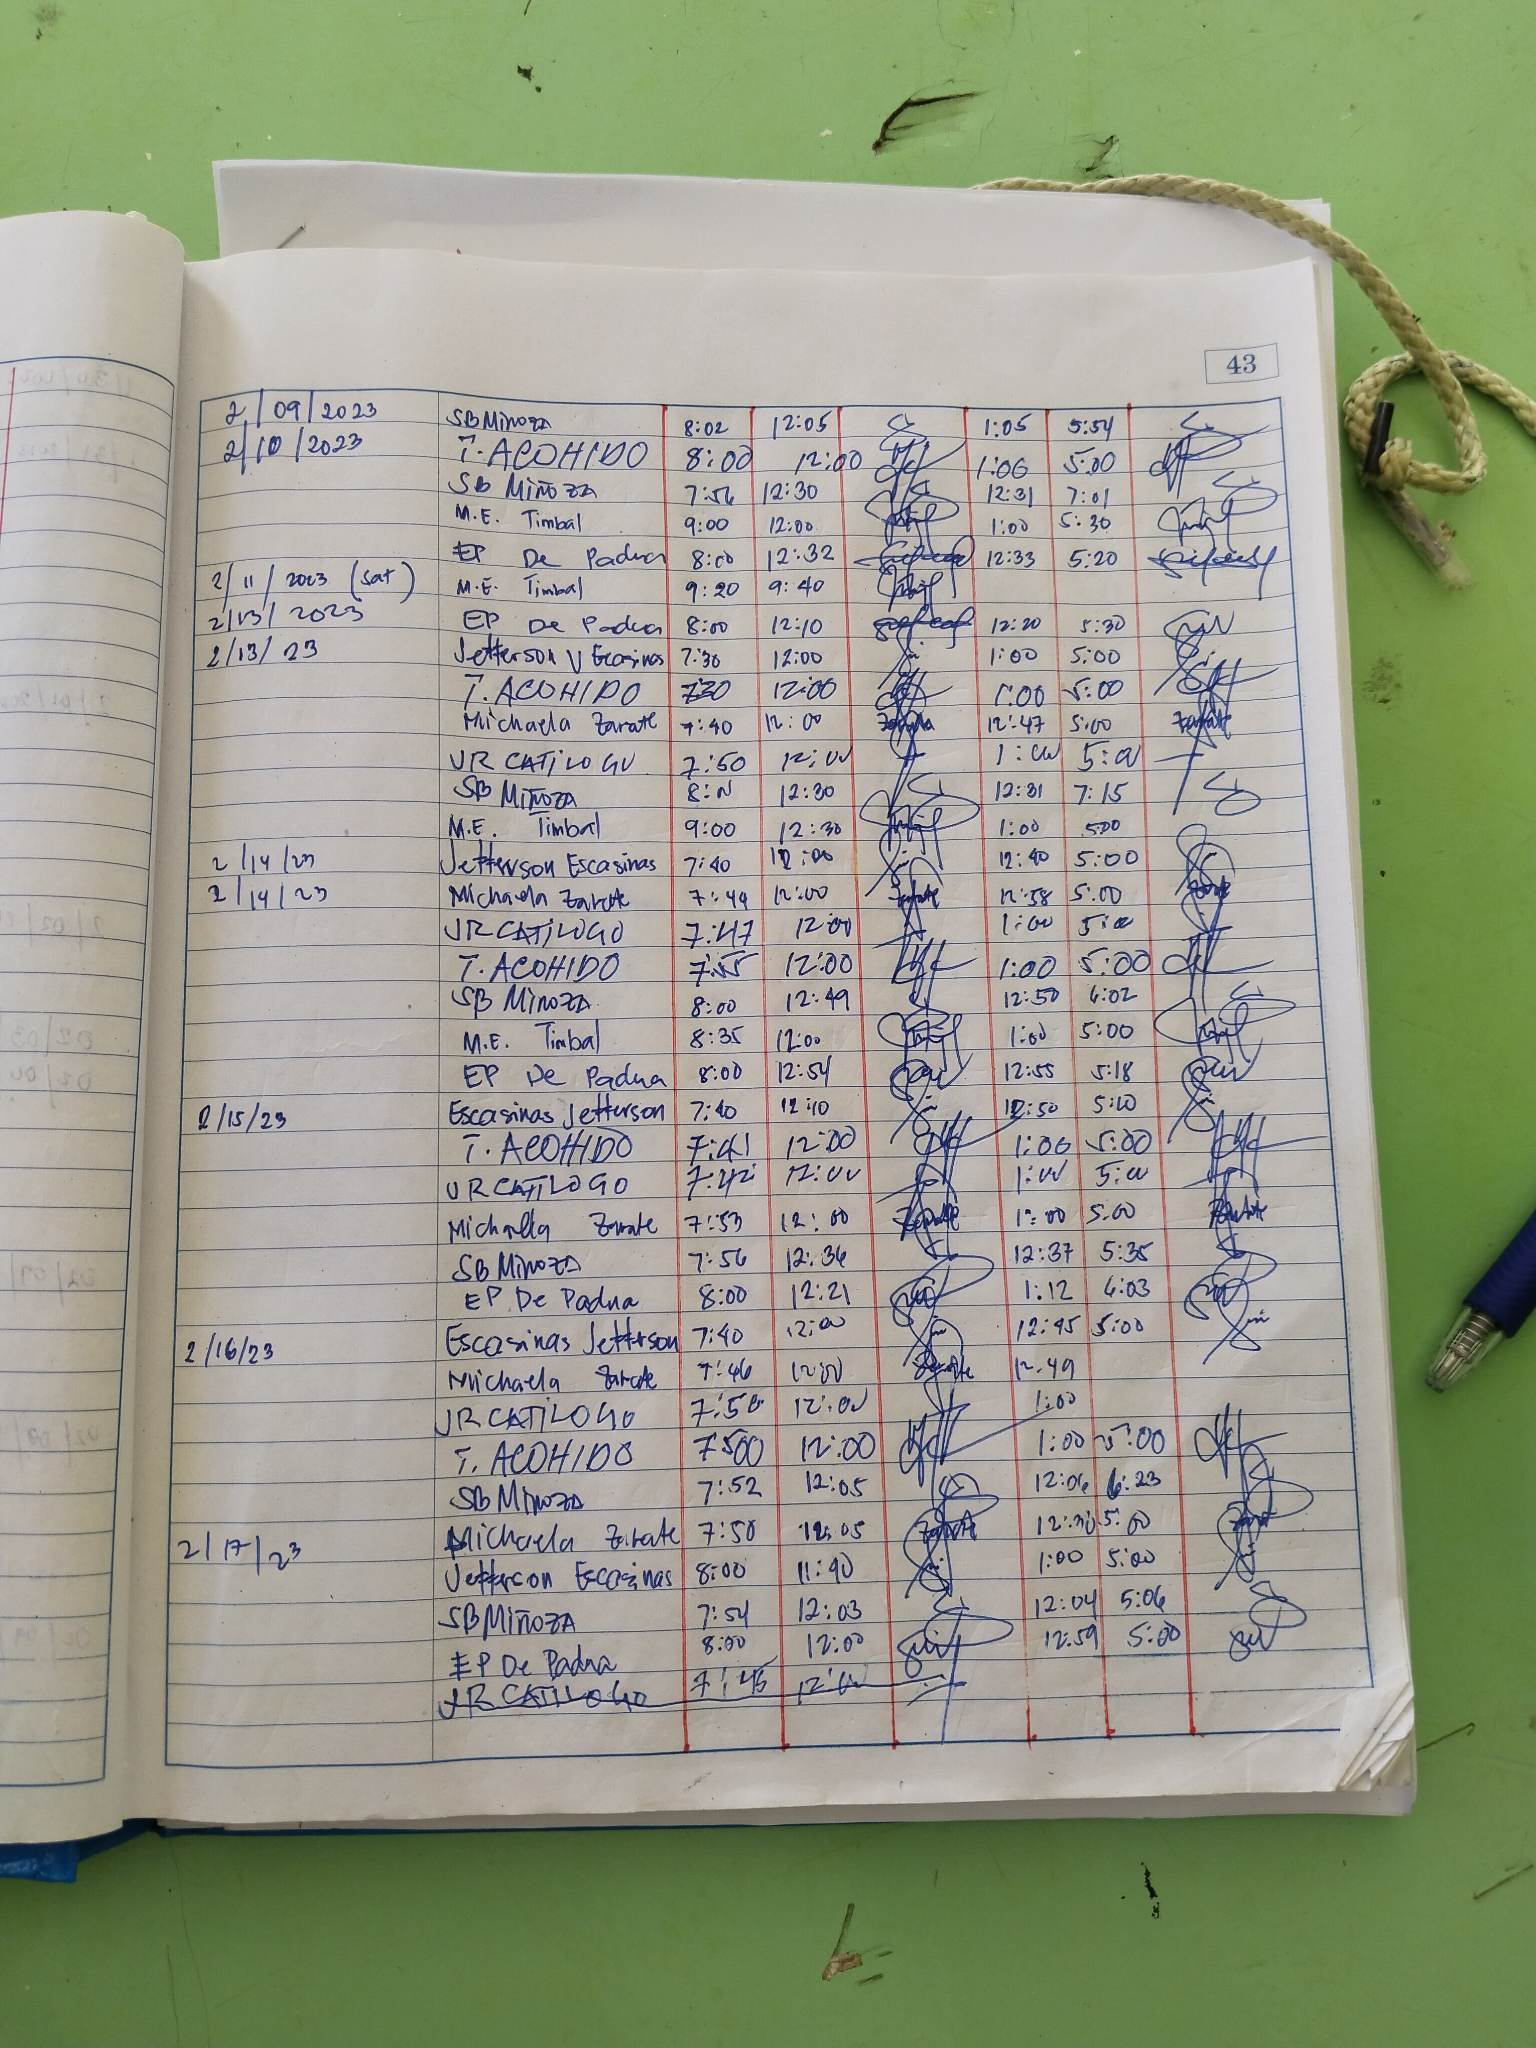 43
2/09/2023 SB Minoza 8:02 12:05 1:05 5:54
2/10/2023 T. ACOHIDO 8:00 12:00 1:00 5:00
SB Miñoza 7:56 12:30 12:31 7:01
M.E. Timbal 9:00 12:00 1:00 5:30
EP De Padua 8:00 12:32 12:33 5:20
2/11/2023 (Sat) M.E. Timbal 9:20 9:40
2/13/2023 EP De Padua 8:00 12:10 12:20 5:30
2/13/23 Jefferson V Ecasinas 7:30 12:00 1:00 5:00
T. ACOHIDO 730 12:00 1:00 5:00
Michaela Zarate 7:40 12:00 Zarate 12:47 5:00 Zarate
JR CATILOGO 7:50 12:00 1:00 5:00
SB Miñoza 12:30 12:31 7:15
M.E. Timbal 9:00 12:30 1:00 500
2/14/23 Jefferson Escasinas 7:40 12:00 12:40 5:00
2/14/23 Michaela Zarate 7:44 12:00 Zarate 12:58 5:00 Zarate
JR CATILOGO 7:47 12:00 1:00 5:00
T. ACOHIDO 7:55 12:00 1:00 5:00
SB Minoza 8:00 12:49 12:50 6:02
M.E. Timbal 8:35 12:00 1:00 5:00
EP De Padua 8:00 12:54 12:55 5:18
2/15/23 Escasinas Jefferson 7:40 12:10 12:50 5:10
T. ACOHIDO 7:41 12:00 1:00 5:00
JR CATILOGO 7:42 12:00 1:00 5:00
Michaela Zarate 7:53 12:00 Zarate 5:00 Zarate
SB Minoza 7:56 12:36 12:37 5:35
EP De Padua 8:00 12:21 1:12 6:03
2/16/23 Escasinas Jefferson 7:40 12:00 12:45 5:00
Michaela Zarate 7:46 12:00 Zarate 12:49
JR CATILOGO 7:50 12:00 1:00
T. ACOHIDO 12:00 1:00 5:00
SB Minoza 7:52 12:05 12:06 6:23
2/17/23 Michaela Zarate 7:50 12:05 Zarate 12:30 5:00 Zarate
Jefferson Escasinas 8:00 11:40 1:00 5:00
SB Miñoza 7:54 12:03 12:04 5:06
EP De Padua 8:00 12:00 12:59 5:00
JR CATILOGO 7:45 12:00